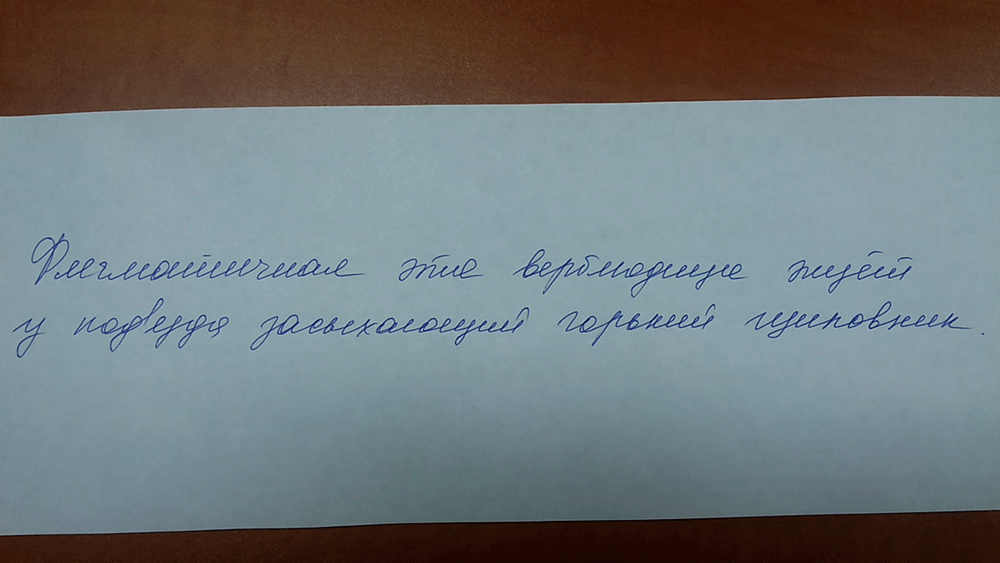 Флегматичная эта верблюдица жуёт
у под'езда засыхающий горький шиповник.